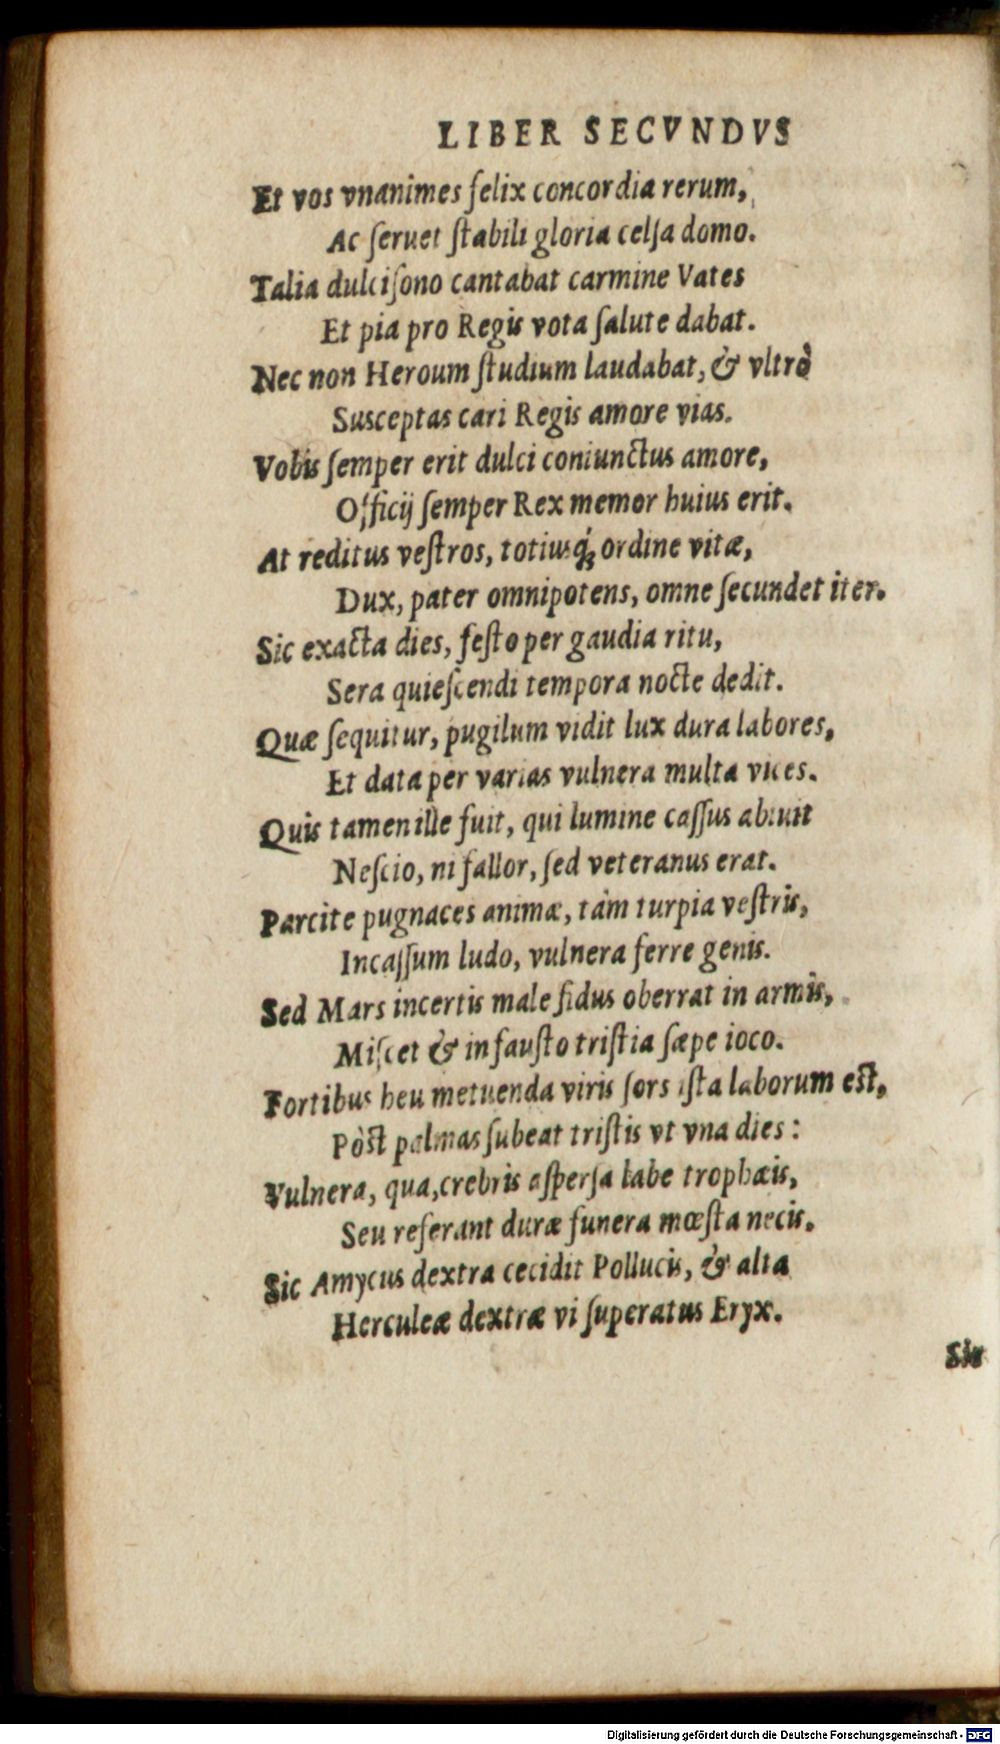 LIBER SECVNDVS
Et vos vnanimes felix concordia rerum,
Ac ſeruet ſtabili gloria celſa domo.
Talia dulciſono cantabat carmine Vates
Et pia pro Regis vota ſalute dabat.
Nec non Heroum ſtudium laudabat, & vltrò
Susceptas cari Regis amore vias.
Vobis ſemper erit dulci coniunctus amore,
Officij ſemper Rex memor huius erit.
At reditus veſtros, totiusq́; ordine vitæ,
Dux, pater omnipotens, omne ſecundet iter.
Sic exacta dies, feſto per gaudia ritu,
Sera quieſcendi tempora nocte dedit.
Quæ ſequitur, pugilum vidit lux dura labores,
Et data per varias vulnera multa vices.
Quis tamen ille fuit, qui lumine caſſus abiuit
Neſcio, ni fallor, ſed veteranus erat.
Parcite pugnaces animæ, tàm turpia veſtris,
Incaſſum ludo, vulnera ferre genis.
Sed Mars incertis male fidus oberrat in armis,
Miſcet & infauſto triſtia ſæpe ioco.
Fortibus heu metuenda viris ſors iſta laborum eſt,
Pòſt palmas ſubeat triſtis vt vna dies:
Vulnera, qua, crebris aſperſa labe trophæis,
Seu referant duræ funera mœſta necis.
Sic Amycus dextra cecidit Pollucis, & alta
Herculeæ dextræ vi ſuperatus Eryx.
Sic
Digitalisierung gefördert durch die Deutsche Forschungsgemeinschaft - DFG